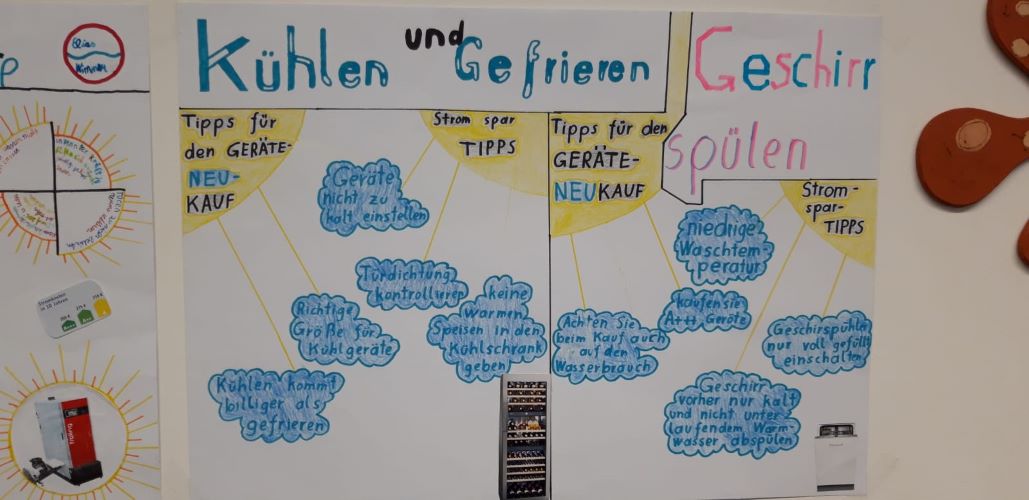 Elias
Kühlen und Gefrieren
Geschirr
spülen
Tipps für
den GERÄTE-
NEU-
KAUF
Strom spar
TIPPS
Geräte
nicht zu
kalt einstellen
Türdichtung
kontrollieren
keine
warmen
Speisen in den
Kühlschrank
geben
Richtige
Größe für
Kühlgeräte
Kühlen kommt
billiger als
gefrieren
Tipps für den
GERÄTE-
NEUKAUF
Strom-
spar-
TIPPS
niedrige
Waschtem-
peratur
kaufen sie
A++ Geräte
Achten Sie
beim Kauf auch
auf den
Wasserbrauch
Geschirspühler
nur voll gefüllt
einschalten
Geschirr
vorher nur kalt
und nicht unter
laufendem Warm-
wasser abspülen
Stromkosten
in 10 Jahren